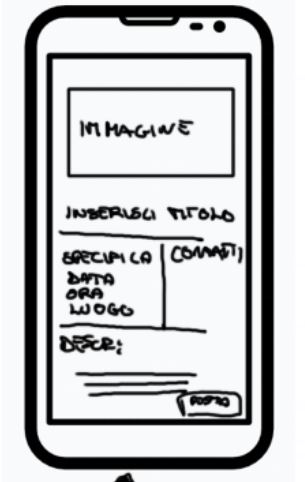 IMMAGINE
INSERISCI TITOLO
SPECIFICA
DATA
ORA
LUOGO
CONTATTI
DESCR:
POSTA